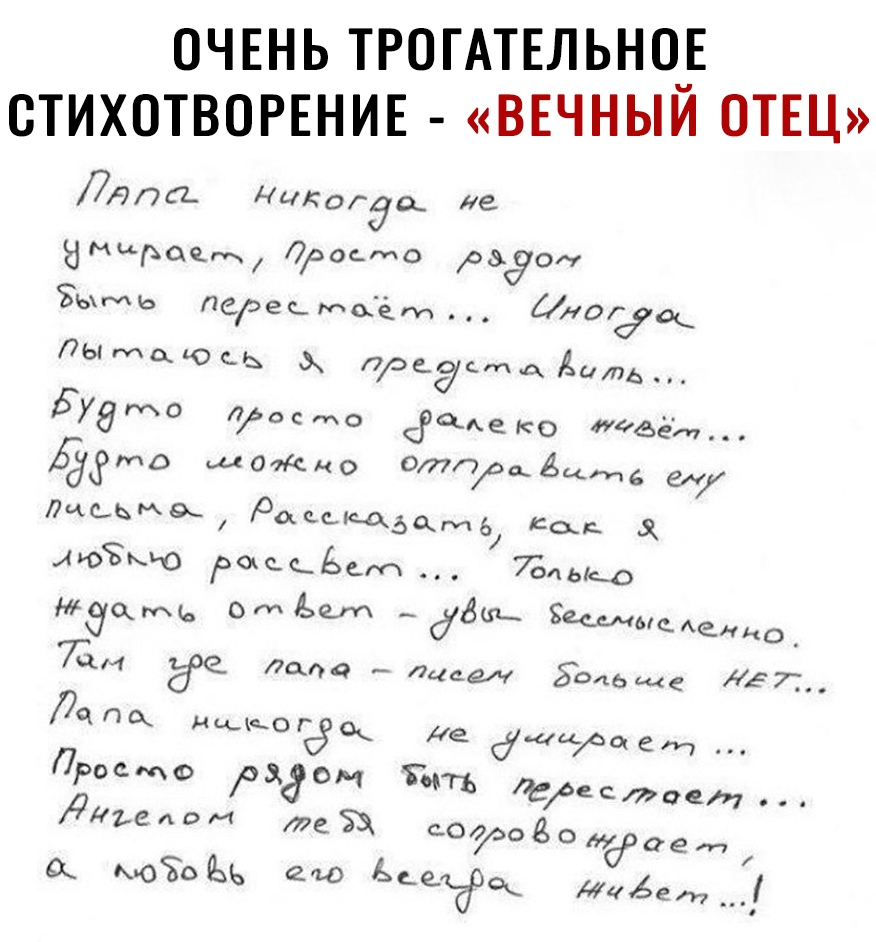 ОЧЕНЬ ТРОГАТЕЛЬНОЕ
СТИХОТВОРЕНИЕ - «ВЕЧНЫЙ ОТЕЦ»
Папа никогда не
умирает, Просто рядом
быть перестаёт... Иногда
пытаюсь я представить...
Будто просто далеко живёт...
Будто можно отправить ему
письма, Рассказать, как я
люблю рассвет... Только
ждать ответ - увы бессмысленно.
Там где папа - писем больше НЕТ...
Папа никогда не умирает...
Просто рядом быть перестает...
Ангелом тебя сопровождает,
а любовь его всегда живет...!